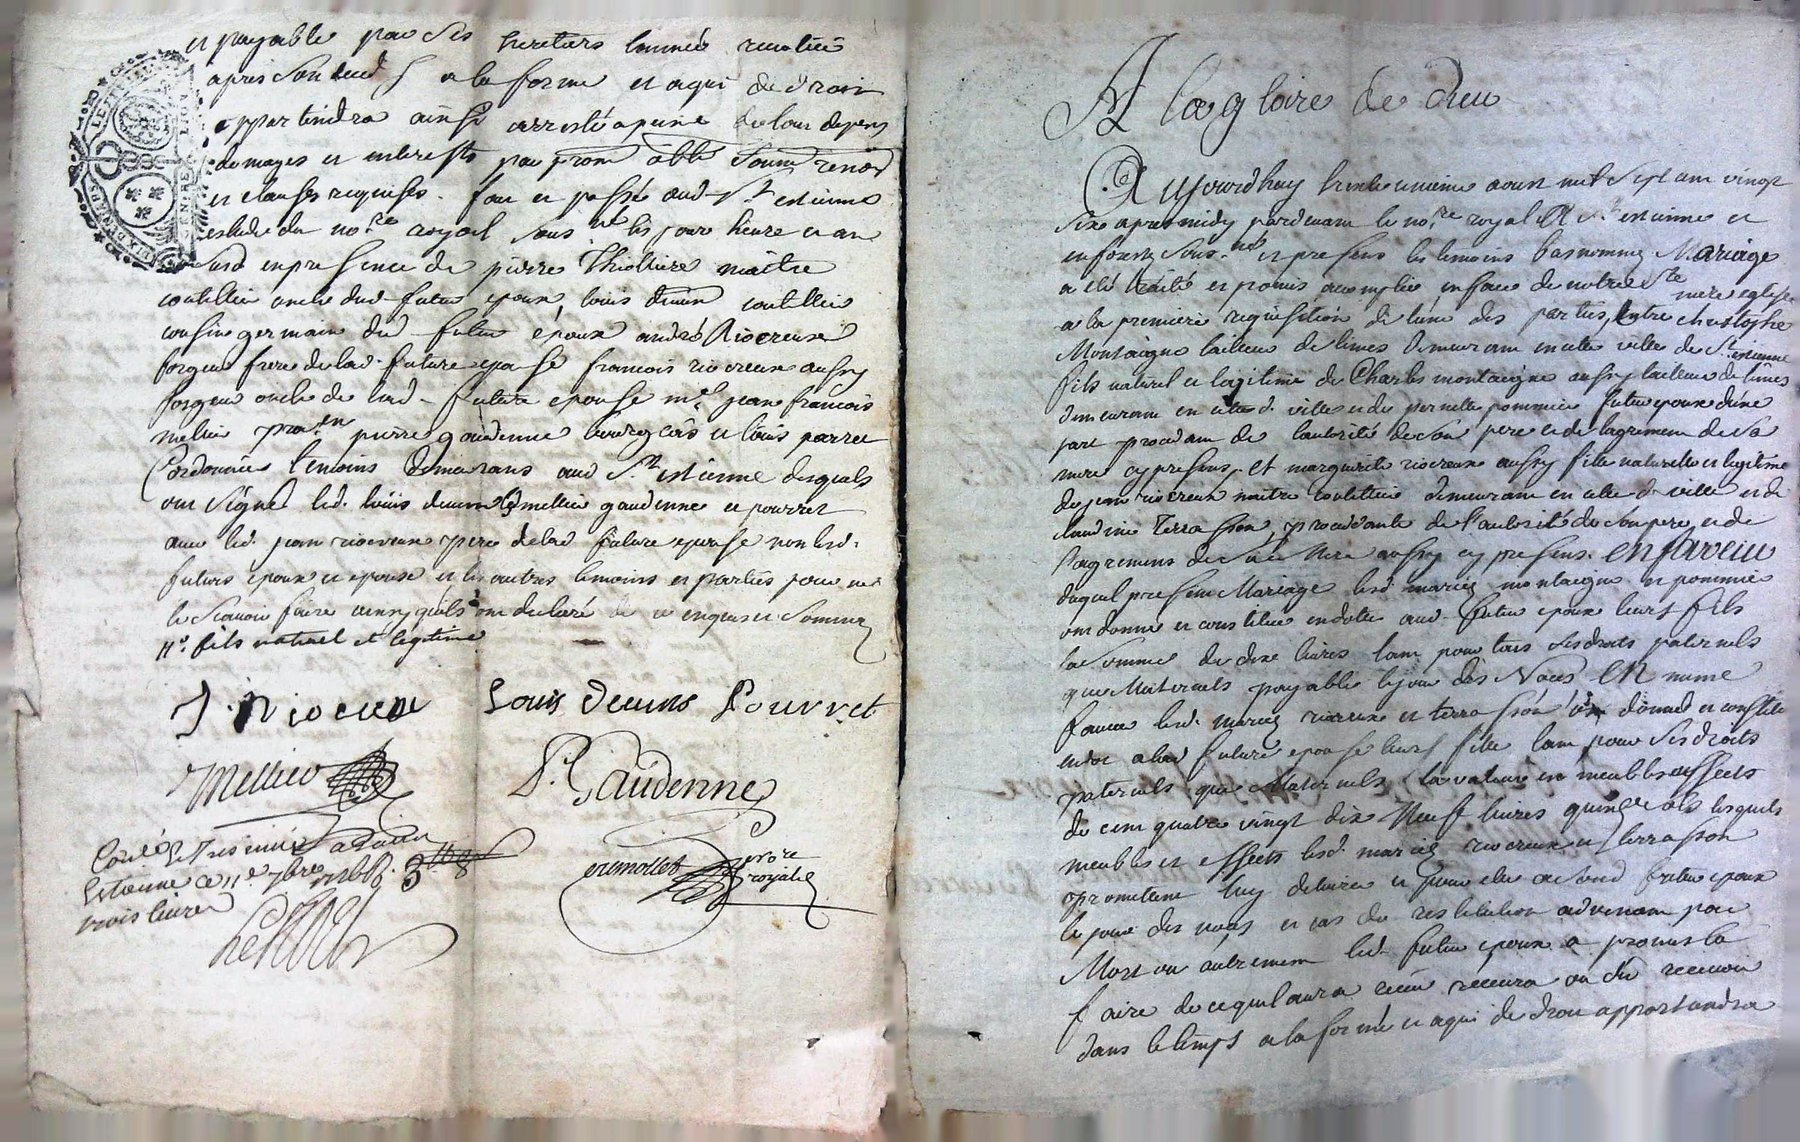 A la gloire de dieu
Aujourdhuy trente unieme aoust mil sept cent vingt
six apres midy pardevant le no.re royal A St. estienne et
en forest sous.né et presens les temoins bas nommez Mariage
a eté traité et promis acomplir en face de notre Ste
mere eglise
a la premiere requisition de lune des parties, Entre christophe
Montaigne tailleur de limes demeurant en cette ville de St. estienne
fils naturel et legitime de Charles montaigne aussy tailleur de limes
demeurant en cette d. ville et de pernette pommier futur epoux dune
part procedant de lautorité de son pere et de lagrement de sa
mere cy presens, Et marguerite riocreux aussy fille naturelle et legitime
de jean riocreux maitre coutellier demeurant en cette d. ville et de
claudine Terrasson, procedante de l'autorité de son pere, et de
lagrement de sa de Mere aussy cy presens. En faveur
duquel present Mariage lesd. mariez montaigne et pommier
ont donné et constitué en dotte aud. futur epoux leurs fils
la somme de dix livres tant pour tous ses droits paternels
que Maternels payable le jour des Nôces En meme
faveur lesd. mariez riocreux et terrasson ont donné et constitué
en dot a lad. future epouse leurs fille tant pour ses droits
paternels que Maternels la valeur en meubles et effects
de cent quatre vingt dix Neuf livres quinze sols lesquels
meubles et effects lesd. mariez riocreux et terrasson
promettent luy delivrer et pour elle aud. futur epoux
le jour des noces et cas de restitution advenant par
Mort ou autrement led. futur epoux a promis la
faire de ce quil aura receu recevra ou dû recevoir
dans le temps a la forme et a qui de droit appartiendra
et payable par ses heritiers lannée revolüe
apres son deceds a la forme et a qui de droit
appartiendra ainsi arresté a peine de tous depens
domages et interests par prom. obb. soum. renon.
et clauses requises. fait et passé aud. St. estienne
estude du no.re royal sous.né les jour heure et an
susd. en presence de pierre Thiolliere maître
coutellier oncle dud. futur epoux, louis Decuns coutellier
cousin germain dud. futur époux andré Riocreux
forgeur frere de lad. future epouse françois riocreux aussy
forgeur oncle de lad. future epouse me. jean françois
mellier pra.en pierre gaudenne bourgeois et louis pourret
Cordonnier temoins demeurans aud. St. estienne desquels
ont signé led. louis decuns led. mellier gaudenne et pourret
avec led. jean riocreux pere de lad. future epouse non lesd.
futurs epoux et epouse et les autres temoins et parties pour ne
le scavoir faire ainsy quils ont declaré de ce enquis et sommez
fils naturel et legitime
J. Riocreux Louis Decuns Pourret
Mellier P. Gaudenne
Con.lé St
Estienne ce 11e 7bre 3
trois livres
notre
royal